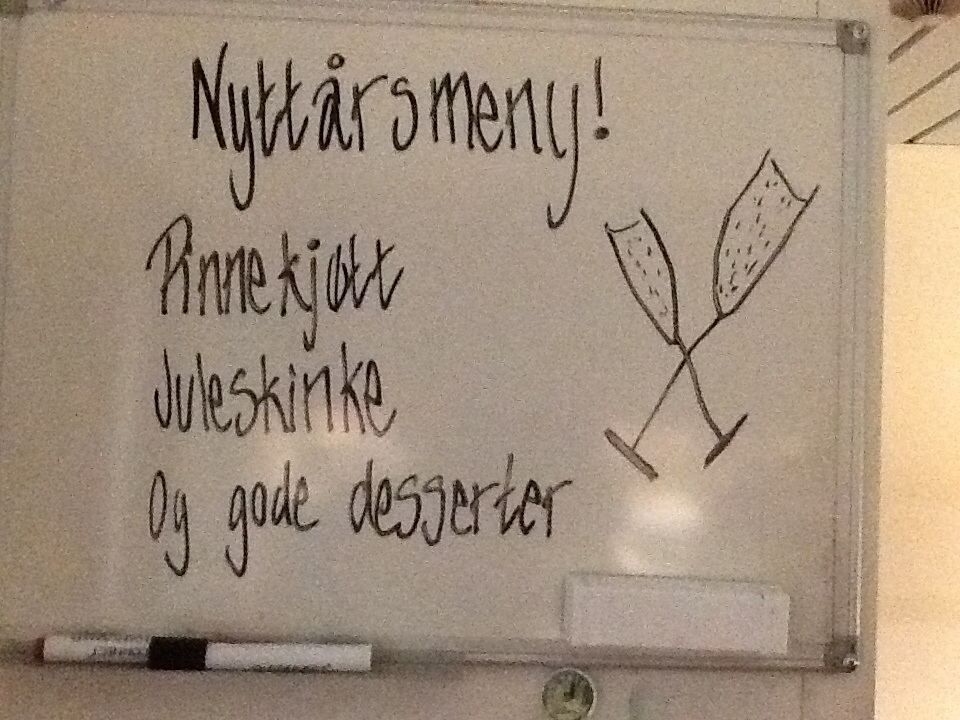 Nyttårsmeny!
Pinnekjøtt
Juleskinke
Og gode desserter